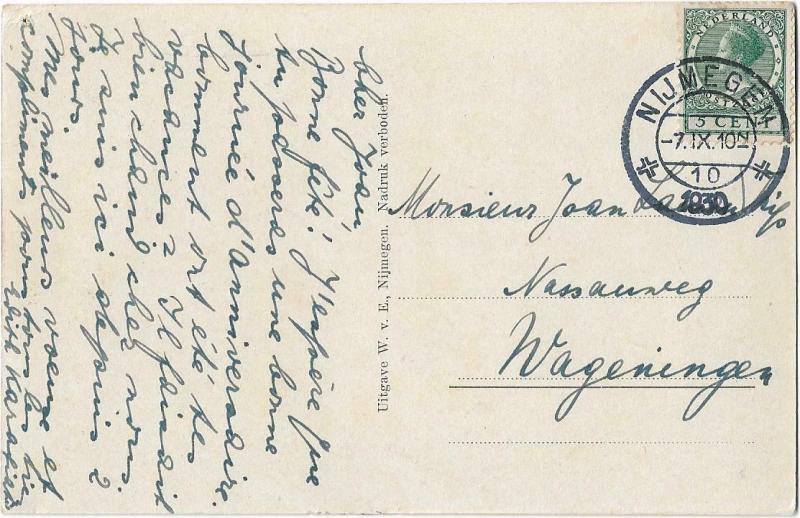 cher Joan,
Bonne fête! J'espère que
tu passeras une bonne
journée d'anniversaire.
Comment ont été tes
vacances? Il faisait
bien chaud chez nous.
Je suis ici depuis 2
jours.
Mes meilleurs voeux et
compliments pour tous les
Edith
Uitgave W. v. E., Nijmegen. Nadruk verboden.
NEDERLAND
5 CENT
NIJMEGEN
-7.IX.10
10
1930
Monsieur Joan
Nassauweg
Wageningen